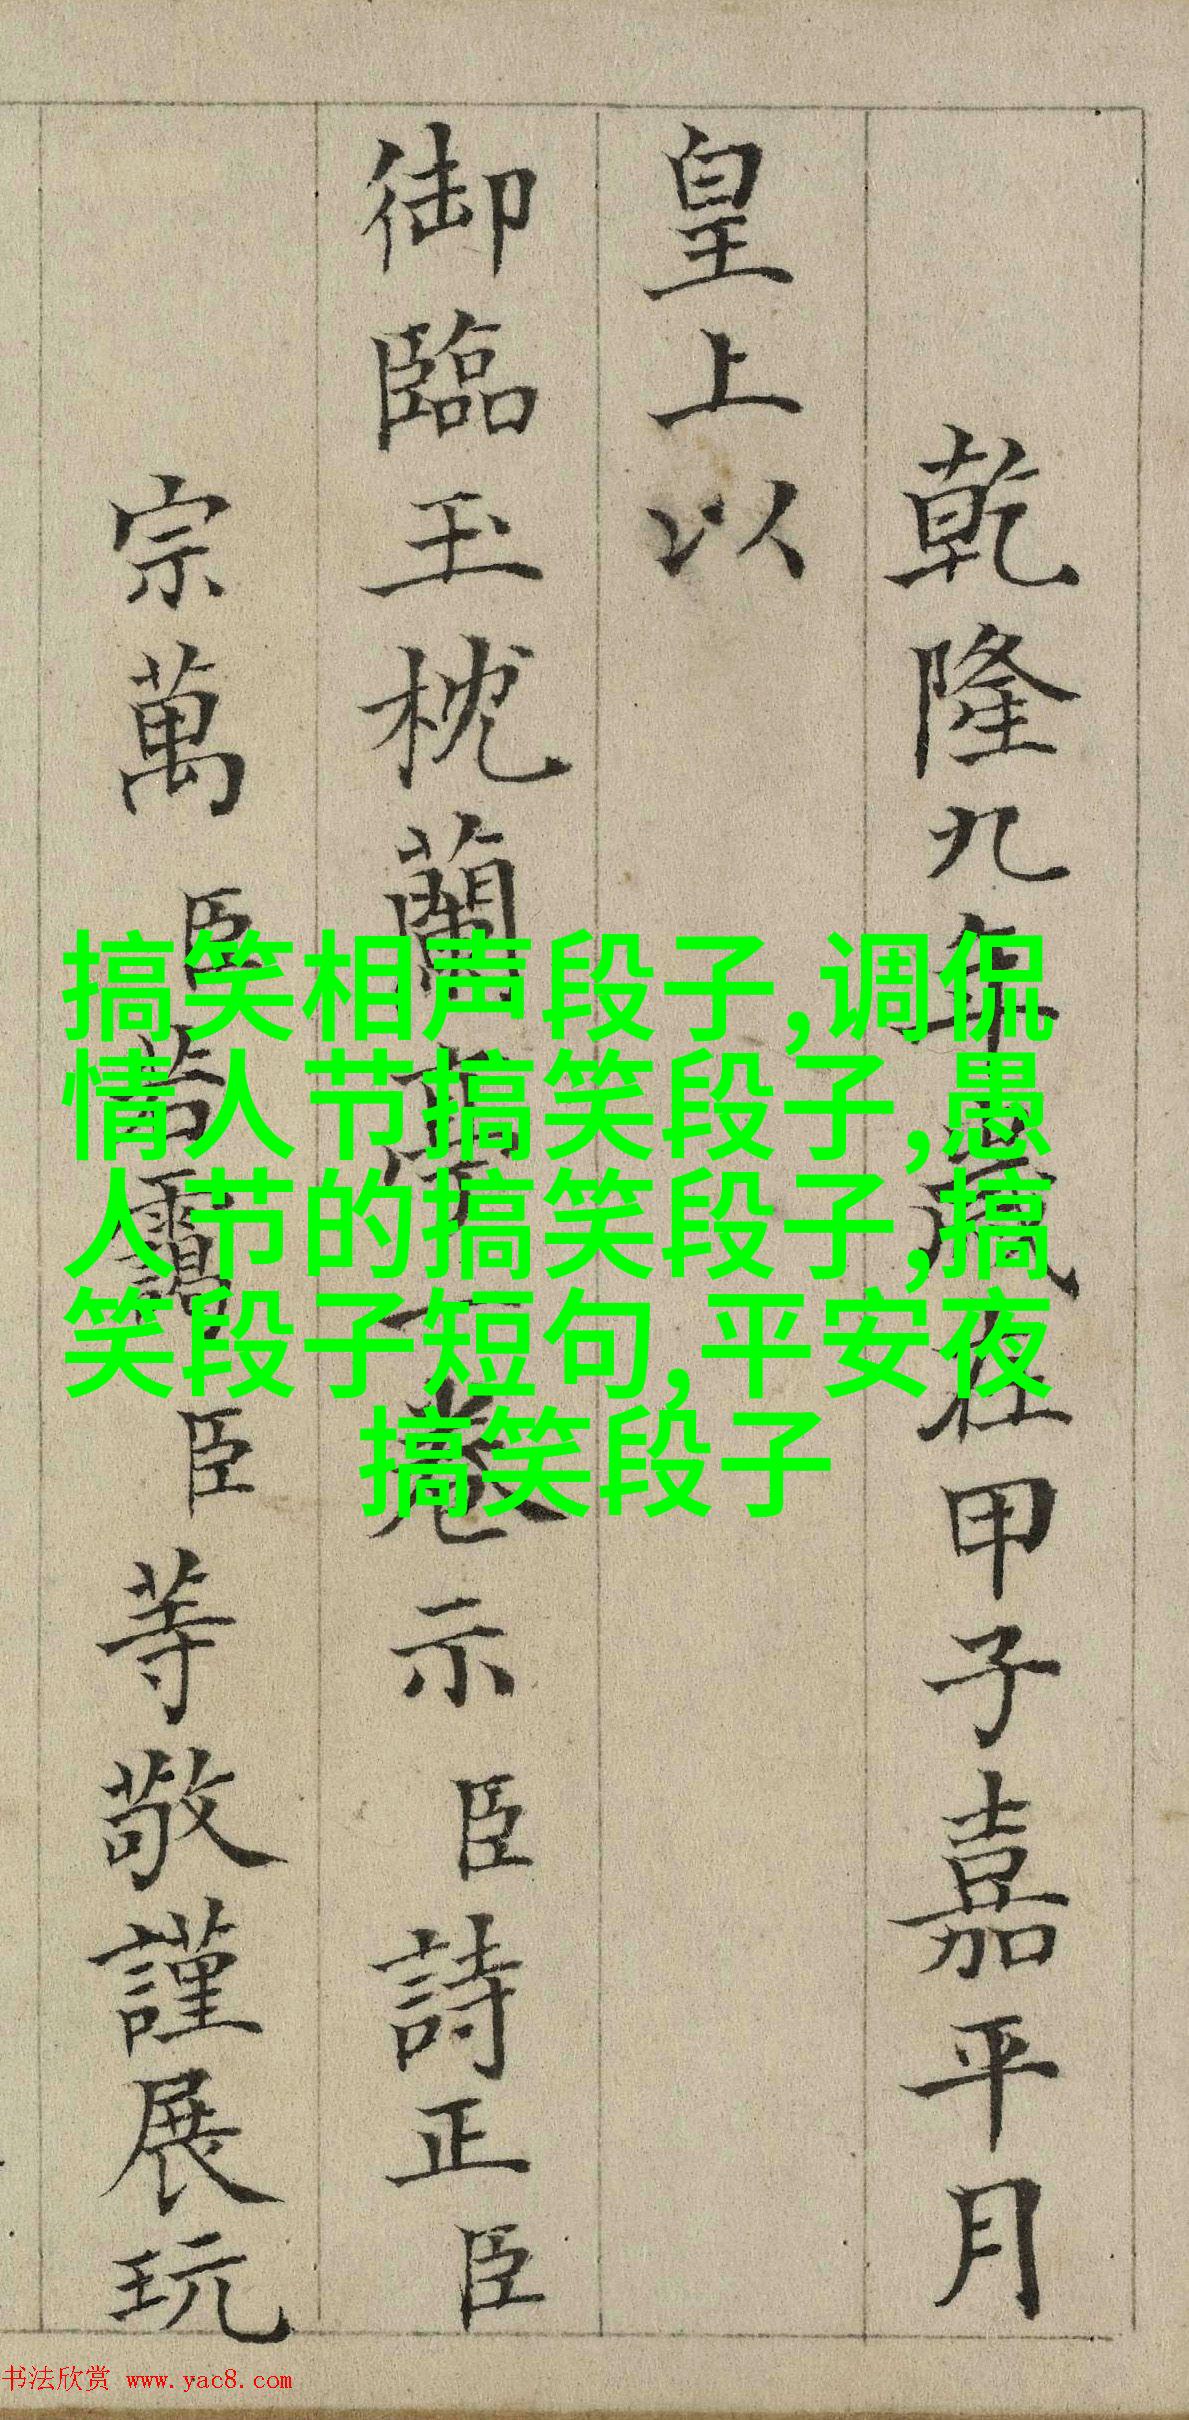 乾隆九年歲在甲子嘉平月
皇上以
御臨玉枕蘭亭一卷示臣詩正臣
宗萬臣若靄臣等敬謹展玩
搞笑相声段子,调侃
情人节搞笑段子,愚
人节的搞笑段子,搞
笑段子短句,平安夜
搞笑段子
书法欣赏 www.yac8.com